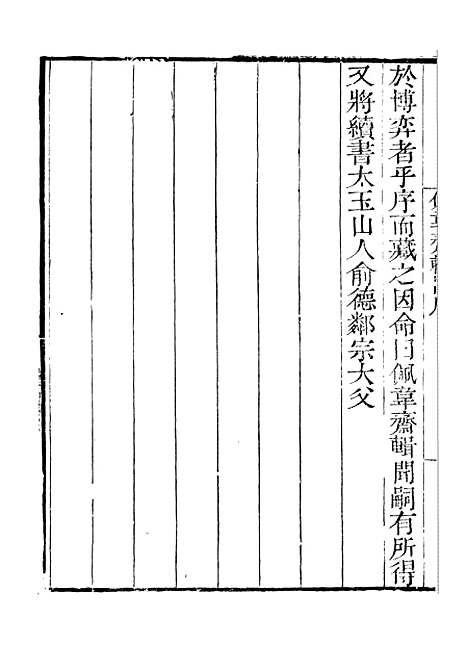 於博弈者乎序而藏之因命曰佩韋齋輯聞嗣有所得
又將續書太玉山人俞德鄰宗大父